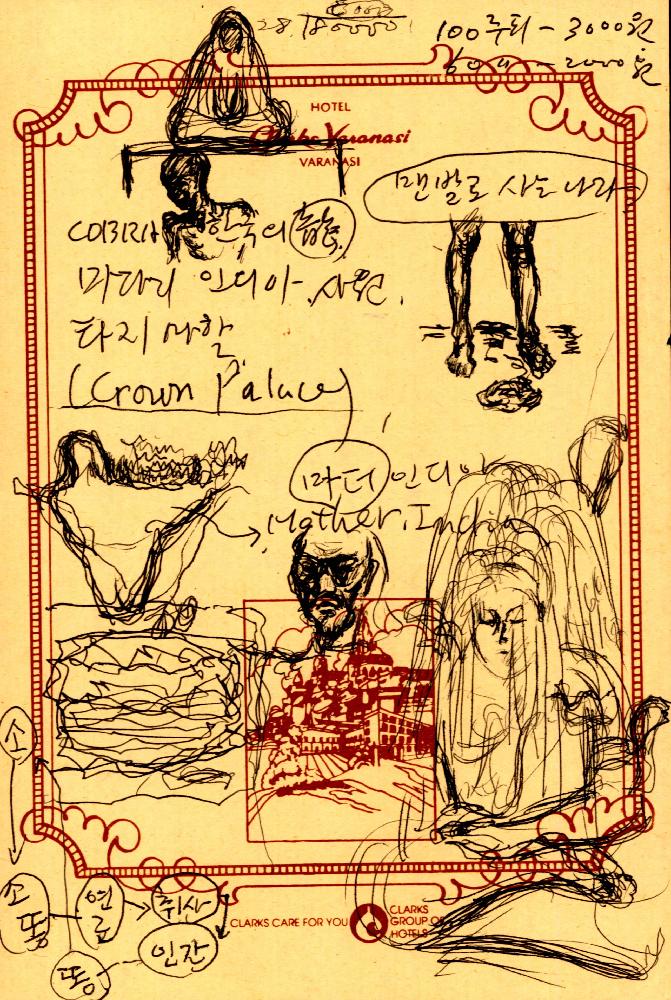 28. 180000
100루피 - 3000원
HOTEL
Clarks Varanasi
VARANASI
맨발로 사는 나라
COBRA 한국의 龍
인디아
타지 마할
(Crown Palace)
마더 인디아
Mother, India
소
소똥
연료
취사
인간
똥
CLARKS CARE FOR YOU
CLARKS
GROUP OF
HOTELS